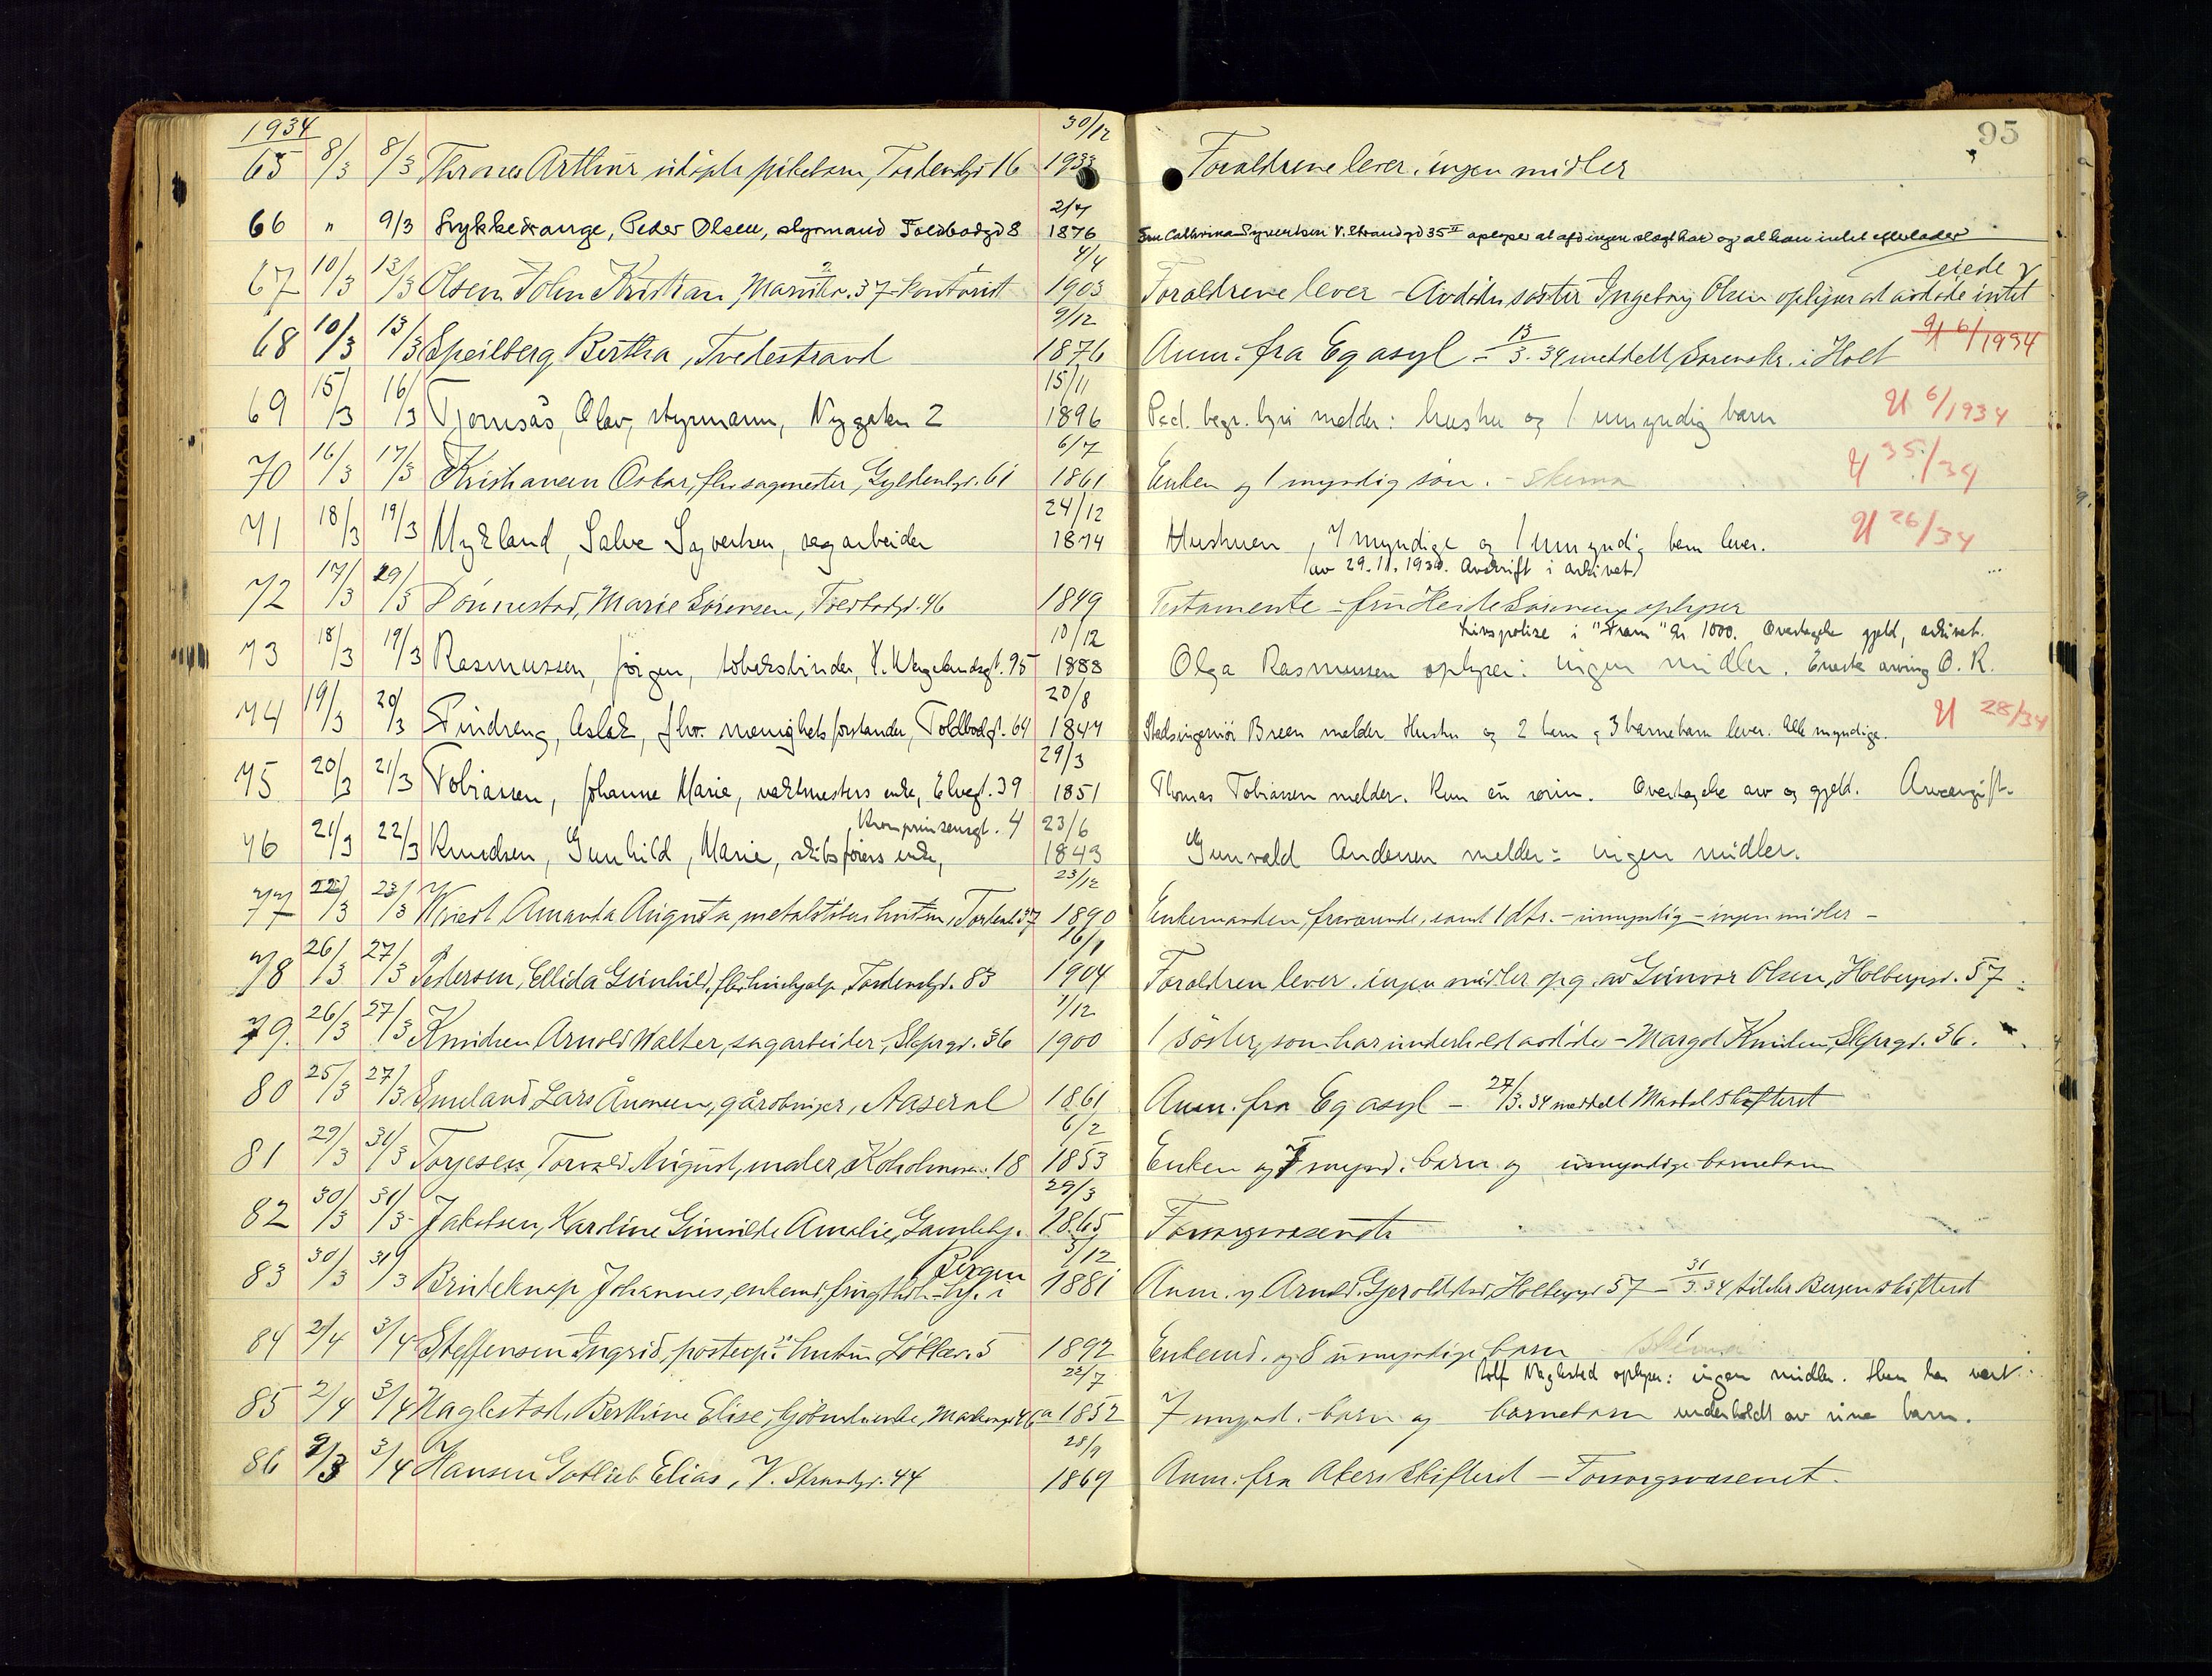 1934
95
65 8/3 8/3 Thranes Arthur udøpte pikebarn, Tordenskj. 16 30/12 1933 Forældrene lever. ingen midler
66 " 9/3 Peder Olsen, styrmand Toldbodgd 8 2/7 1876 Fru Cathrina Syvertsen V. Strandgd 35 II oplyser at afd ingen slægt har og at han intet efterlader
67 10/3 13/3 Olsen John Kristian, 37 kontorist 4/4 1903 Forældrene lever - Avdødes søster Ingeborg Olsen oplyser at avdøde intet eiede
68 10/3 13/3 Speilberg Bertha, Tvedestrand 9/12 1876 Anm. fra Eg asyl - 13/3. 34 meddelt Sorenskr. i Holt U 6/1934
69 15/3 16/3 Tjomsås, Olav, styrmann, Nygaten 2 15/11 1896 begr. byrå melder: hustru og 1 umyndig barn U 6/1934
70 16/3 17/3 Kristiansen Oskar, fhv sagmester, Gyldenløvsg. 61 6/7 1861 Enken og 1 myndig søn. - Skema U 35/34
71 18/3 19/3 Mykland, Salve Syvertsen, sagarbeider 24/12 1874 Hustruen, 7 myndige og 1 umyndig barn lever. U 26/34
72 17/3 19/3 Dönnestad, Marie Sörensen, Toldbodgd. 46 1849 Testamente - frü Heide Sörensen oplyser
(av 29.11.1930. Avskrift i arkivet)
73 18/3 19/3 Rasmussen, Jørgen, tobaksbinder, H. Wergelandsgt. 95 10/12 1883 Olga Rasmussen oplyser: ingen midler. Eneste arving O. R.
Livspolise i "Fram" kr. 1000. Overtagelse gjeld, arkivet.
74 19/3 20/3 Findreng, Aslak, fhv. menighetsforstander, Toldbodgt. 64 20/8 1847 Stadsingeniør Breen melder Hustru og 2 barn og 3 barnebarn lever. Alle myndige. U 28/34
75 20/3 21/3 Tobiassen, Johanne Marie, vaktmesters enke, Elvegt. 39 29/3 1851 Thomas Tobiassen melder. Kun én sønn. Overtagelse arv og gjeld. Arveavgift.
76 21/3 22/3 Knudsen, Gunhild, Marie, skibsførers enke, Kronprinsensgt. 4 23/6 1843 Gunvald Andersen melder: ingen midler.
77 22/3 23/3 Amanda Augusta, hustru, 37 23/12 1890 Enkemanden, fraværende, samt 1 dtr. - umyndig - ingen midler -
78 26/3 27/3 Pedersen, Ellida Gunhild, Tordenskj. 83 16/1 1904 Forældren lever. ingen midler opg. av Gunvor Olsen, Holbergsgd. 57
79. 26/3 27/3 Knudsen Arnold Walter, sagarbeider, Skprgd. 36 1/12 1900 1 söster, som har underholdt avdøde - Margot Knudsen, Skprgd. 36.
80 25/3 27/3 Smeland Lars Ånensen, gårdbruger, Aaseral 1861 Anm. fra Eg asyl - 27/3. 34 meddelt Mandal Skifteret
81 29/3 31/3 Torjesen, Torvald August, maler, Kokolmsv. 18 6/2 1853 Enken og 7 mynd. barn og umyndige barnebarn
82 30/3 31/3 Jakobsen, Karoline Amalie, Gamlehj. 29/3 1865 Forsorgsvæsendt
83 30/3 31/3 Brudeknap Johannes, enkemd, i Bergen 3/12 1881 Anm. av Arnold Holbergsgd 57 - 31/3. 34 Bergen skifteret
84 2/4 3/4 Steffensen Ingrid, postexp. hustru 5 1892 Enkemd. og 8 umyndige barn Skema
85 2/4 3/4 Naglestad, Berthine Elise, Markensgd 46a 22/7 1852 7 mynd. barn og barnebarn underholdt av sine barn.
Rolf Naglestad oplyser: ingen midler. Hun har vært
86 2/3 3/4 Hansen Gotlieb Elias, V. Strandgd. 44 28/9 1869 Anm. fra Akers Skifteret - Forsorgsvæsenet.